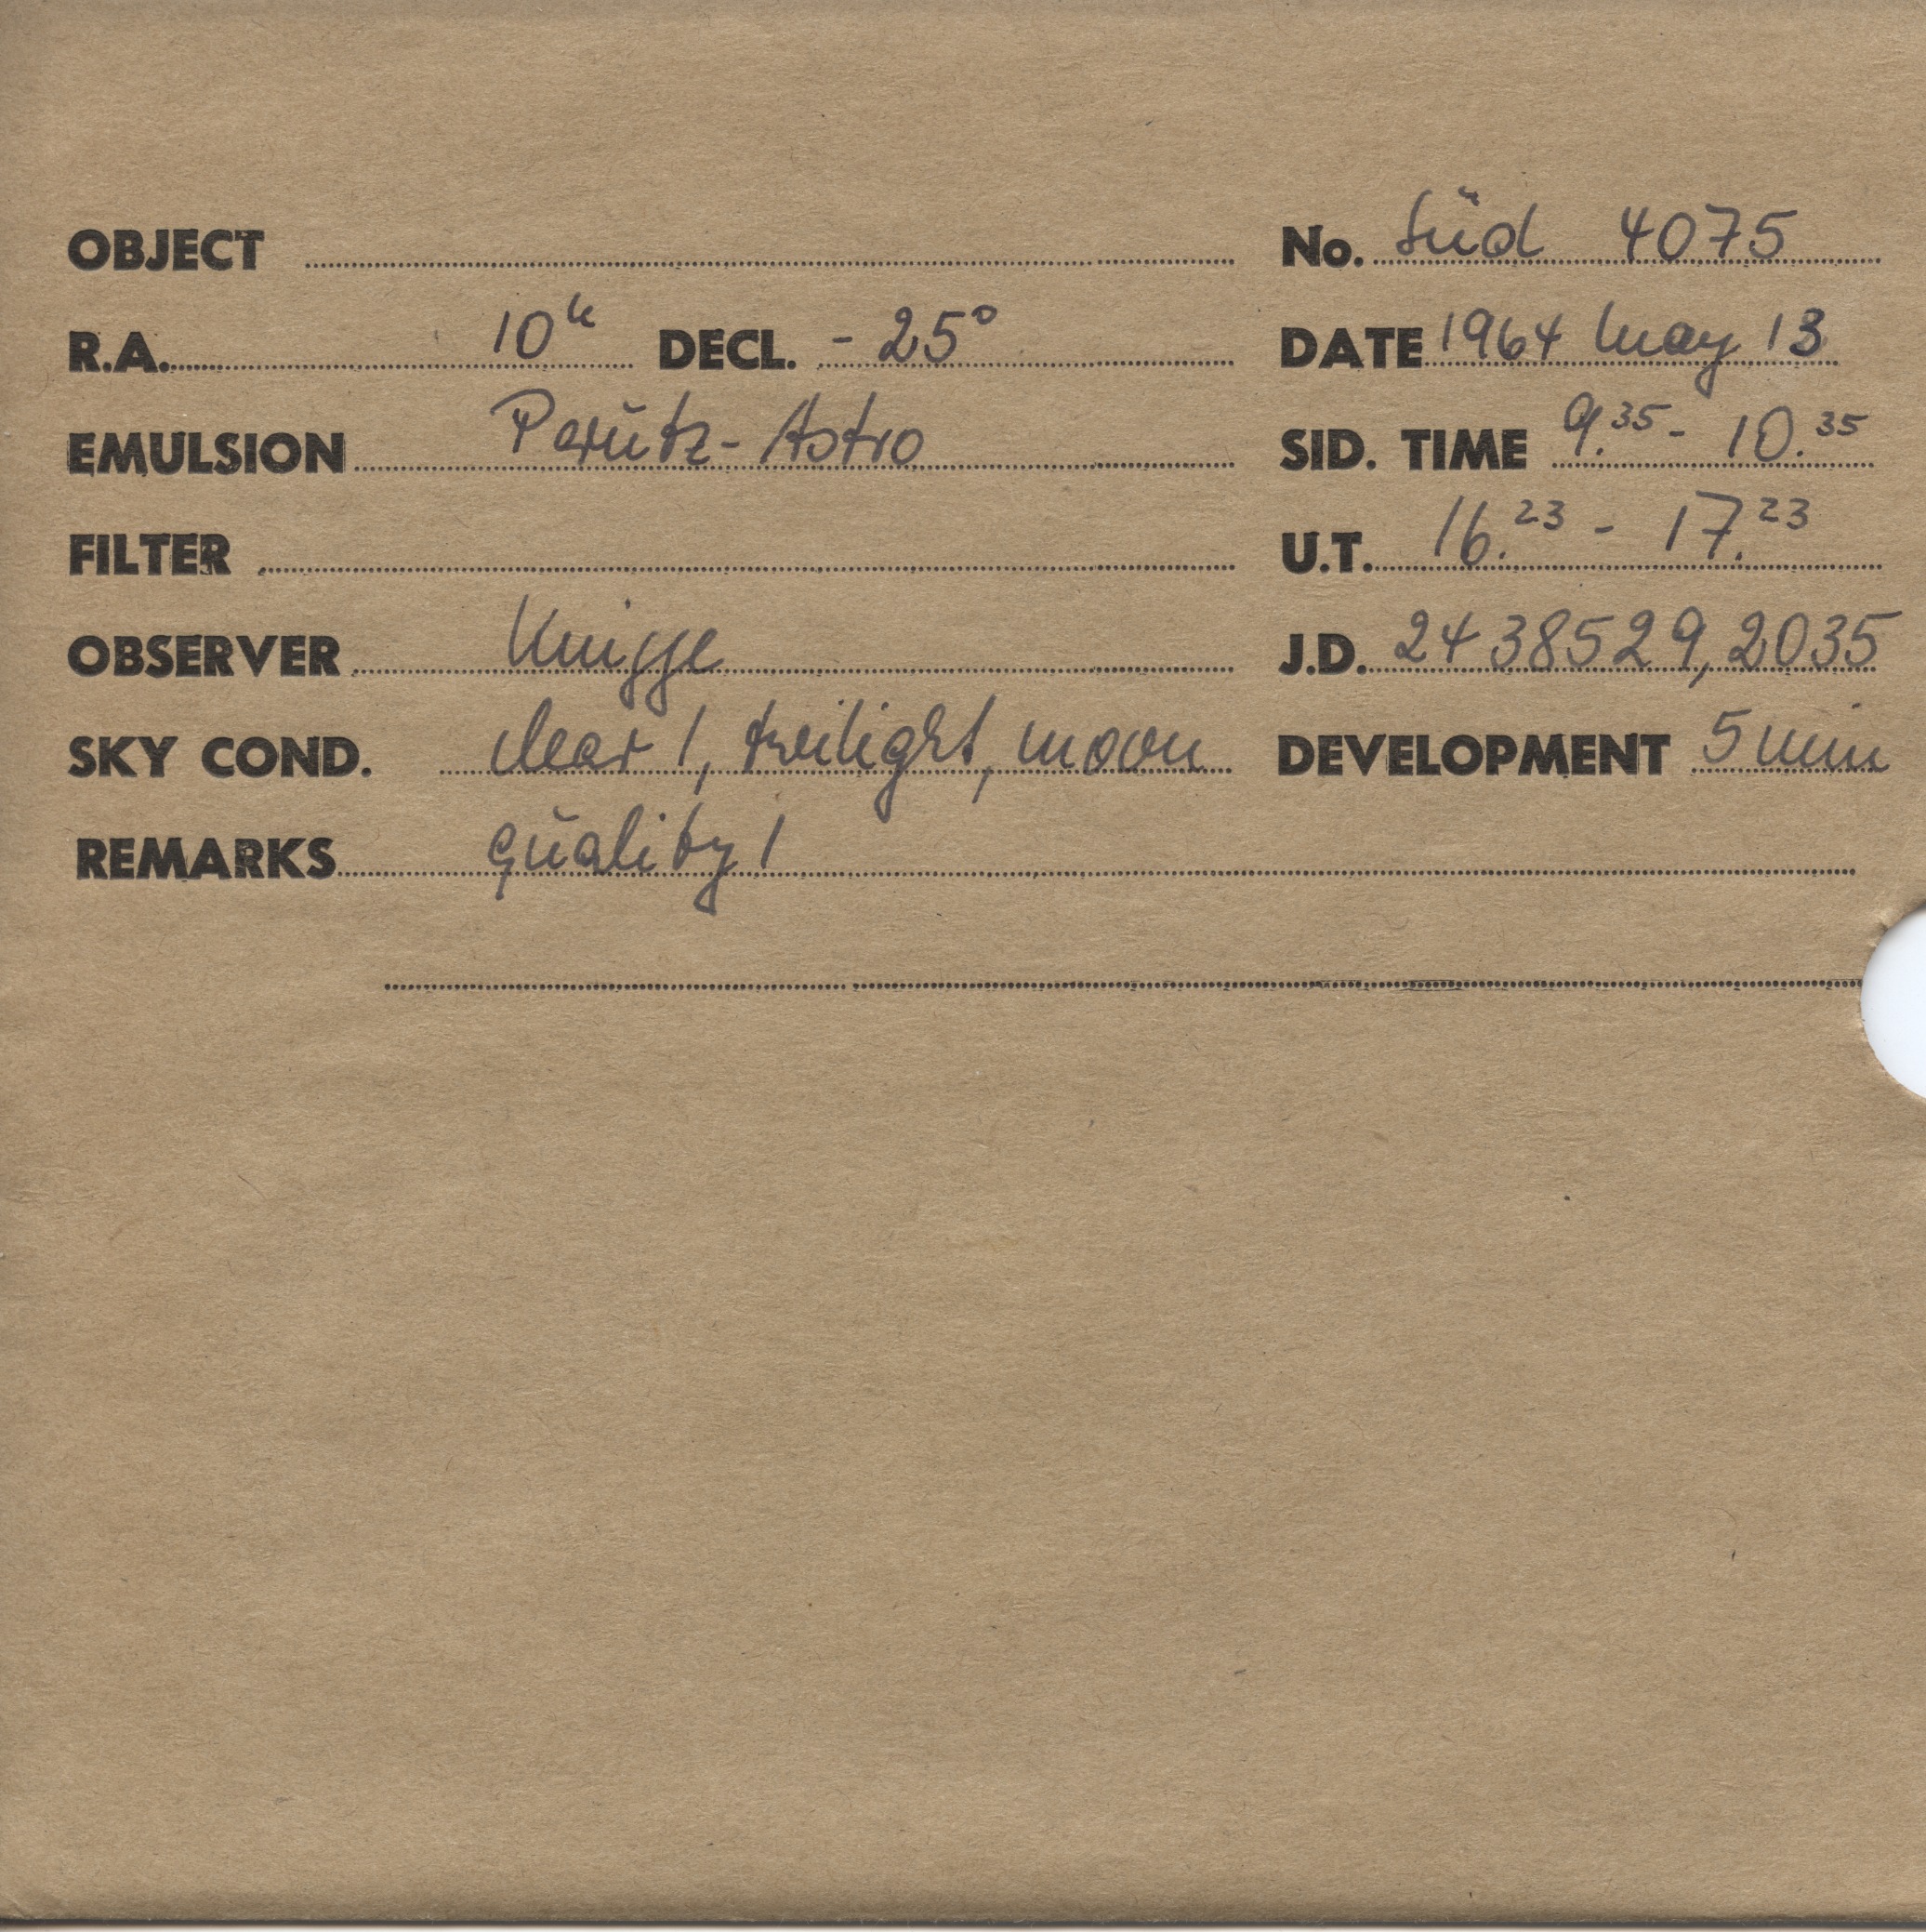 OBJECT No. Süd 4075
R.A. 10h DECL. - 25° DATE 1964 May 13
EMULSION Perutz-Astro SID. TIME 9.35 - 10.35
FILTER U.T. 16.23 - 17.23
OBSERVER Knigge J.D. 2438529,2035
SKY COND. clear 1, twilight, moon DEVELOPMENT 5 min
REMARKS quality 1